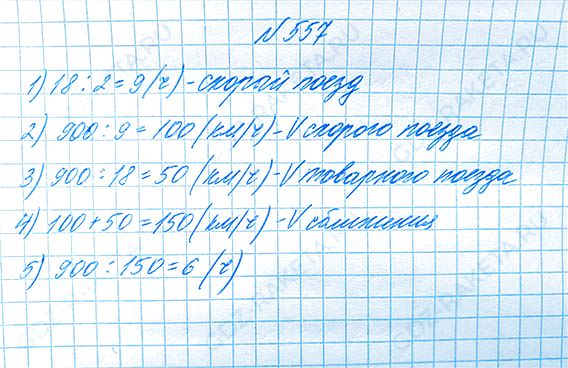 N 557
1) 18 : 2 = 9 (ч) - скорый поезд
2) 900 : 9 = 100 (км/ч) - V скорого поезда
3) 900 : 18 = 50 (км/ч) - V товарного поезда
4) 100 + 50 = 150 (км/ч) - V сближения
5) 900 : 150 = 6 (ч)